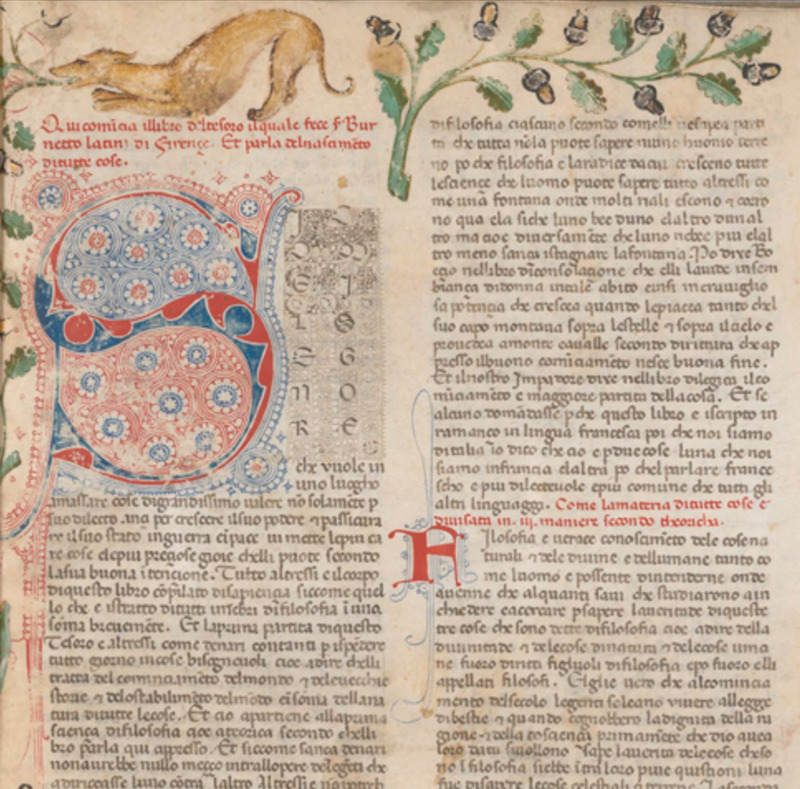 Qui comīcia illibro dltesoro ilquale fece sʳ Bur
netto latini di firençe. Et parla delnascimēto
ditutte cose.
Q
VESTO LIGNORE
che vuole in
uno luogho
amassare cose digrandissimo valere nō solamēte p
suo dilecto. anç per crescere ilsuo podere ⁊ passicura
re ilsuo stato inguerra eīpace vi mette lepiu ca
re cose elepiu preçiose gioie chelli puote secondo
lasua buona ītencione. Tutto altressi e ilcorpo
diquesto libro cōpilato disapiencia siccome quel
lo che e istratto ditutti īmebri dīfilosofia ī una
sōma brieuemēte. Et laprima partita diquesto
Tesoro e altressi come denari contanti p ispēdere
tutto giorno incose bisognieuoli cioe adire chelli
tratta del cominciamēto delmondo ⁊ deleuecchie
storie ⁊ delostabilimēto delmōdo eīsoma dellana
tura ditutte lecose. Et cio apartiene allaprima
sciença difilosofia cioe ateorica secondo chelli
bro parla qui appresso. Et siccome sança denari
nonaurebbe nullo meçço intrallopere delegēti che
adiriççasse luno cōtra laltro Altressi e
difilosofia ciascuno secondo comelli
ti che tutta nōla puote sapere niuno huomo
no po che filosofia e laradice dacui crescono tutte
lescience che luomo puote sapere tutto altressi co
me una fontana onde molti riali escono ⁊ corro
no qua ela siche luno bee duno elaltro dun al
tro ma cioe diuersamēte che luno nebee piu elal
tro meno sança istagnare lafontana. Po dixe Bo
ecio nellibro dīconsolacione che elli lauide insem
biança didonna intale abito eīnsi merauiglio
sa potēcia che crescea quando lepiacea tanto chel
suo capo montaua sopra lestelle ⁊ sopra ilcielo e
prouedea amonte eaualle secondo dirittura che ap
presso ilbuono comīciamēto nesce buona fine.
Et ilnostro Impadore dixe nellibro dilegi che ilco
mīciamēto e maggiore partita dellacosa. Et se
alcuno domādasse pche questo libro e iscripto in
ramanço in lingua francesca poi che noi siamo
ditalia io dico che cio e p due cose luna che noi
siamo infrancia elaltra po chel parlare france
sco e piu dilecteuole epiu comune che tutti gli
altri linguaggi. Come lamateria ditutte cose e
diuisata in .iij. maniere secondo theorica.
Filosofia e uerace conoscimēto dele cose na
turali ⁊ dele diuine e dellumane tanto co
me luomo e possente dintenderne onde
auenne che alquanti saui che studiarono a in
chiedere eacercare p sapere lauertade diqueste
tre cose che sono dette difilosofia cioe adire della
diuinitade ⁊ delecose dinatura ⁊ delecose uma
ne fuoro diritti figliuoli difilosofia epo fuoro elli
appellati filosofi. Eglie uero che alcomincia
mento delsecolo legenti soleano viuere allegge
dibestie ⁊ quando cognobbero ladignita della ra
gione ⁊ della conoscença primamēte che dio auea
loro dato